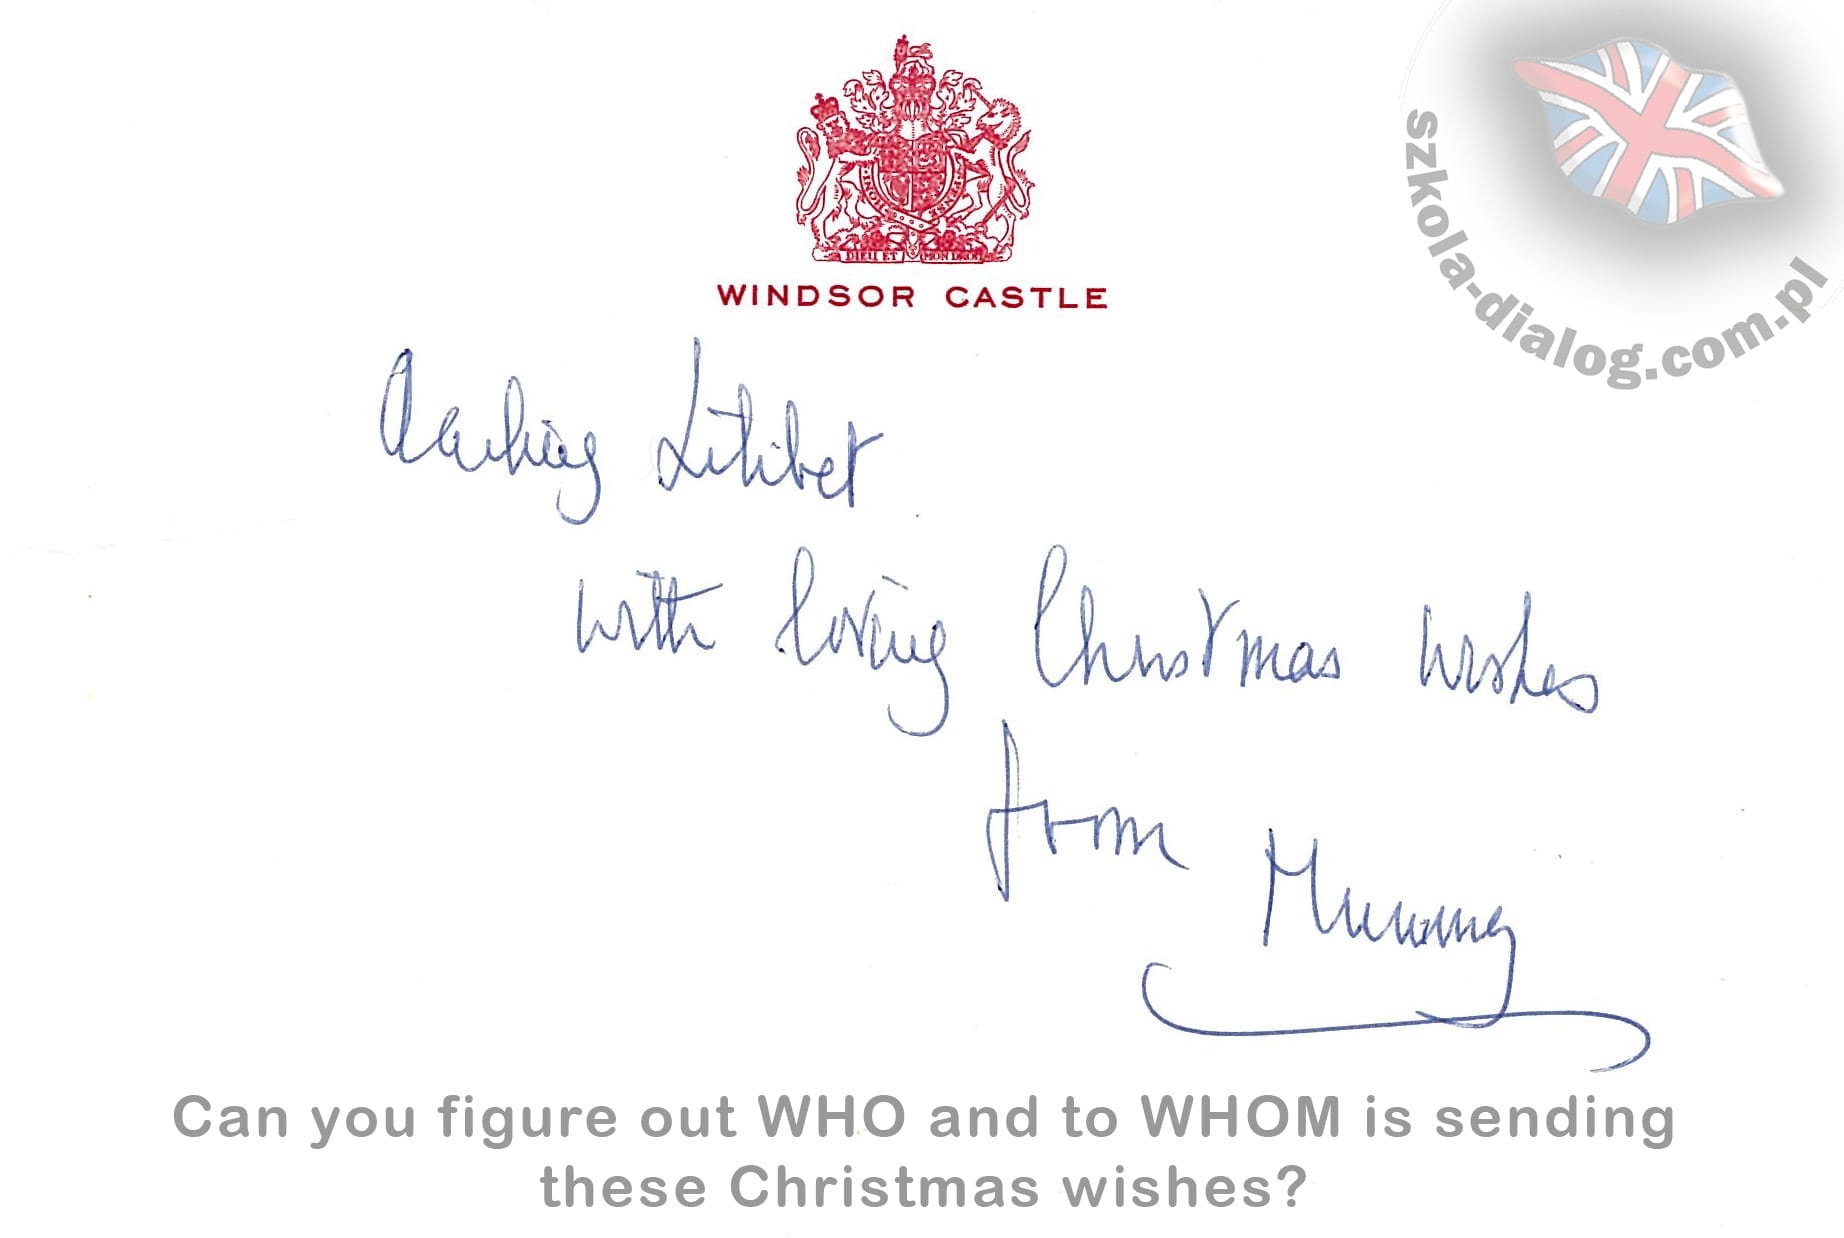 DIEU ET MON DROIT
WINDSOR CASTLE
szkola-dialog.com.pl
Darling Lilibet
with loving Christmas wishes
from Mummy
Can you figure out WHO and to WHOM is sending
these Christmas wishes?